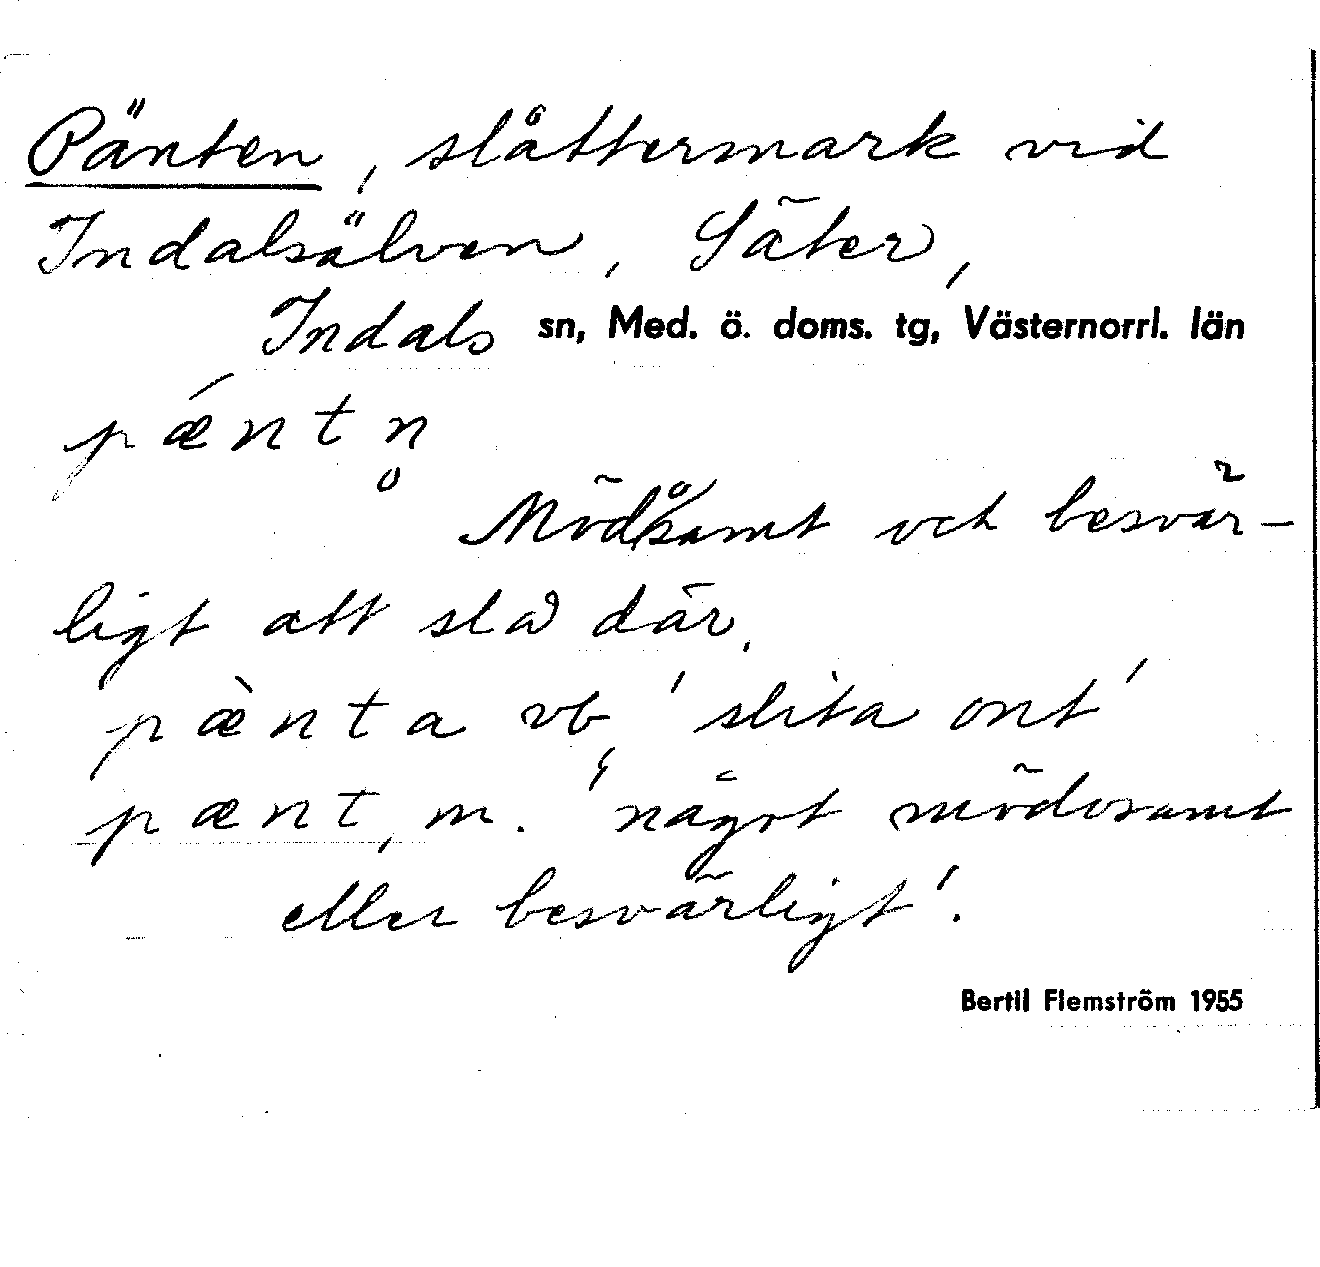 Pänten, slåttermark vid
Indalsälven, Säter,
Indals sn, Med. ö. doms. tg, Västernorrl. län
pǽntn̥
Mödosamt och besvär-
ligt att slå där.
pæ̀nta vb, 'slita ont'
pænt, m. 'något mödosamt
eller besvärligt'.
Bertil Flemström 1955